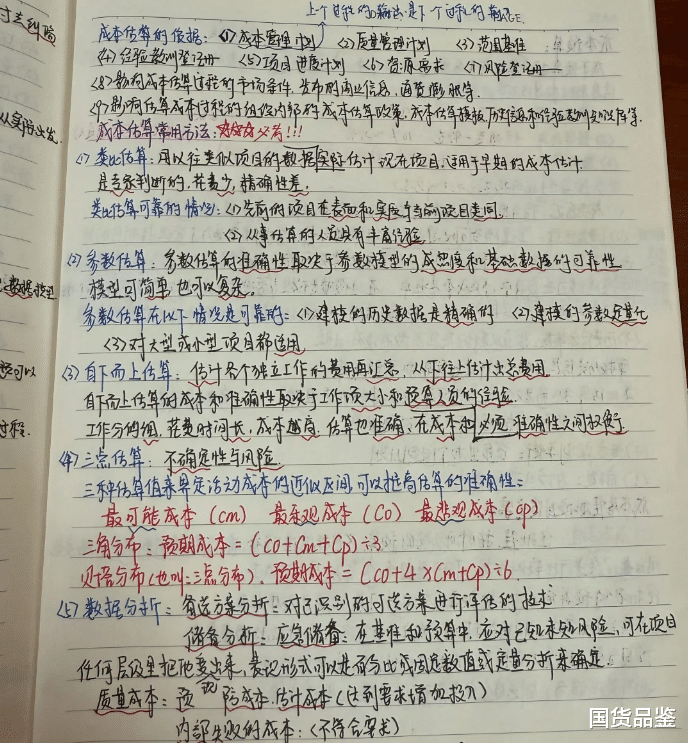 上个过程的输出是下个过程的输入
成本估算的依据：<1>成本管理计划 <2>质量管理计划 <3>范围基准
<4>经验教训登记册 <5>项目进度计划 <6>资源需求 <7>风险登记册
<8>影响成本估算过程的市场条件，发布的商业信息，通货膨胀等
<9>影响估算成本过程的组织内部的成本估算政策，成本估算模板，历史信息和经验教训知识库等
成本估算常用方法：必考!!!
<1>类比估算：用以往类似项目的数据实际估计现在项目，适用于早期的成本估计
是专家判断的，花费少，精确性差
类比估算可靠的情况：<1>先前的项目在表面和实质与当前项目类同
<2>从事估算的人员具有丰富经验
<2>参数估算：参数估算的准确性取决于参数模型的成熟度和基础数据的可靠性
模型可简单也可以复杂
参数估算在以下情况是可靠的：<1>建模的历史数据是精确的 <2>建模的参数定量化
<3>对大型或小型项目都适用
<3>自下而上估算：估计各个独立工作的费用再汇总，从下往上估计出总费用
自下而上估算的成本和准确性取决于工作项大小和预算人员的经验
工作分的细，花费时间长，成本越高，估算也准确，在成本和必须准确性之间权衡
<4>三点估算：不确定性与风险
三种估算值来界定活动成本的近似区间，可以提高估算的准确性：
最可能成本（cm） 最乐观成本（Co） 最悲观成本（Cp）
三角分布：预期成本=（co+Cm+Cp）÷3
贝塔分布（也叫三点分布），预期成本=（co+4×Cm+Cp）÷6
<5>数据分析：备选方案分析：对已识别的可选方案进行评估的技术
储备分析：应急储备：在基准和预算中，应对已知未知风险，可在项目
任何层级里把他表出来，表现形式可以是百分比或固定数值或定量分析来确定
质量成本：预防成本，估计成本（达到要求增加投入）
内部失败的成本：（不符合要求）
讨去纠偏
从实际出发
数据模型
可以
过程
国货品鉴